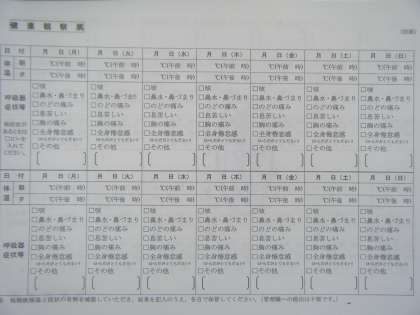 健康観察票
日付 月 日（月） 月 日（火） 月 日（水） 月 日（木） 月 日（金） 月 日（土） 月 日（日）
体温 朝 ℃(午前 時) ℃(午前 時) ℃(午前 時) ℃(午前 時) ℃(午前 時) ℃(午前 時) ℃(午前 時)
夕 ℃(午後 時) ℃(午後 時) ℃(午後 時) ℃(午後 時) ℃(午後 時) ℃(午後 時) ℃(午後 時)
呼吸器症状等
□咳 □咳 □咳 □咳 □咳 □咳 □咳
□鼻水・鼻づまり □鼻水・鼻づまり □鼻水・鼻づまり □鼻水・鼻づまり □鼻水・鼻づまり □鼻水・鼻づまり □鼻水・鼻づまり
□のどの痛み □のどの痛み □のどの痛み □のどの痛み □のどの痛み □のどの痛み □のどの痛み
□息苦しい □息苦しい □息苦しい □息苦しい □息苦しい □息苦しい □息苦しい
□胸の痛み □胸の痛み □胸の痛み □胸の痛み □胸の痛み □胸の痛み □胸の痛み
□全身倦怠感 □全身倦怠感 □全身倦怠感 □全身倦怠感 □全身倦怠感 □全身倦怠感 □全身倦怠感
□その他 □その他 □その他 □その他 □その他 □その他 □その他
日付 月 日（月） 月 日（火） 月 日（水） 月 日（木） 月 日（金） 月 日（土） 月 日（日）
体温 朝 ℃(午前 時) ℃(午前 時) ℃(午前 時) ℃(午前 時) ℃(午前 時) ℃(午前 時) ℃(午前 時)
夕 ℃(午後 時) ℃(午後 時) ℃(午後 時) ℃(午後 時) ℃(午後 時) ℃(午後 時) ℃(午後 時)
呼吸器症状等
□咳 □咳 □咳 □咳 □咳 □咳 □咳
□鼻水・鼻づまり □鼻水・鼻づまり □鼻水・鼻づまり □鼻水・鼻づまり □鼻水・鼻づまり □鼻水・鼻づまり □鼻水・鼻づまり
□のどの痛み □のどの痛み □のどの痛み □のどの痛み □のどの痛み □のどの痛み □のどの痛み
□息苦しい □息苦しい □息苦しい □息苦しい □息苦しい □息苦しい □息苦しい
□胸の痛み □胸の痛み □胸の痛み □胸の痛み □胸の痛み □胸の痛み □胸の痛み
□全身倦怠感 □全身倦怠感 □全身倦怠感 □全身倦怠感 □全身倦怠感 □全身倦怠感 □全身倦怠感
□その他 □その他 □その他 □その他 □その他 □その他 □その他